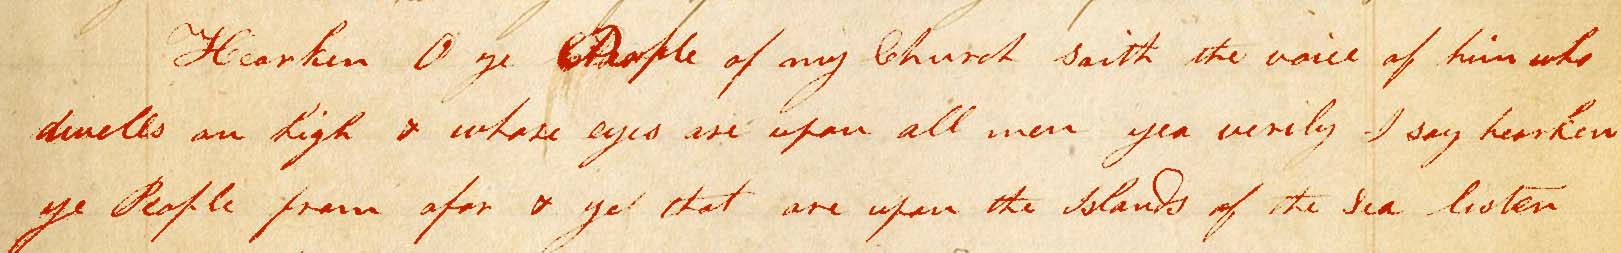 Hearken O ye People of my Church saith the voice of him who
dwells on high & whose eyes are upon all men yea verily I say hearken
ye People from afar & ye that are upon the Islands of the Sea listen